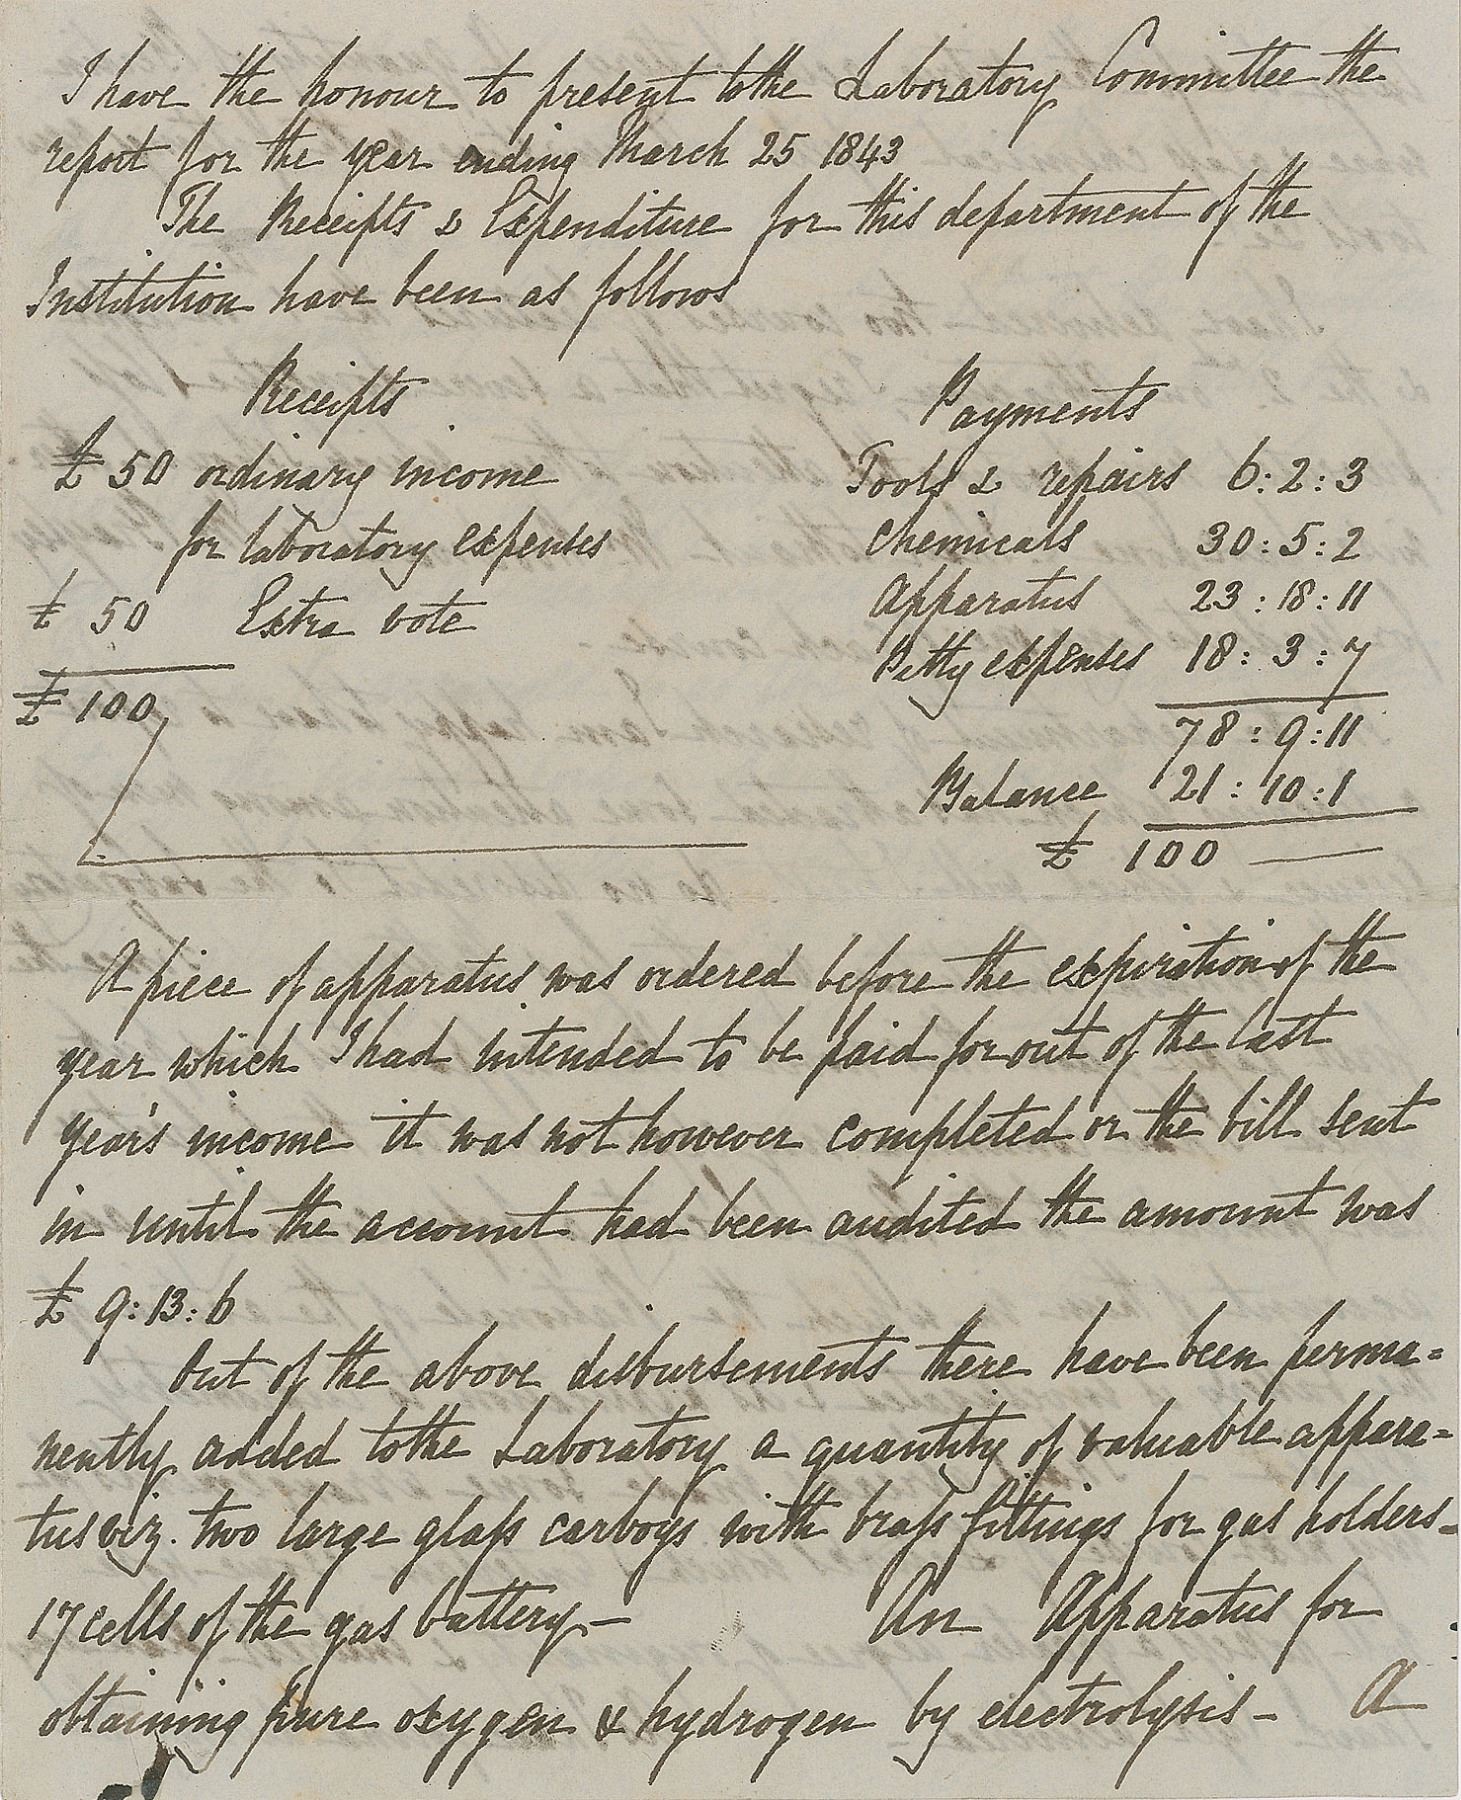 I have the honour to present to the Laboratory Committee the
report for the year ending March 25 1843
The Receipts & Expenditure for this department of the
Institution have been as follows
Receipts
£ 50 ordinary income
for laboratory expenses
£ 50 Extra vote
£ 100
Payments
Tools & repairs 6:2:3
Chemicals 30:5:2
Apparatus 23:18:11
Petty expenses 18:3:7
78:9:11
Balance 21:10:1
£ 100 —
A piece of apparatus was ordered before the expiration of the
year which I had intended to be paid for out of the last
year's income it was not however completed or the bill sent
in until the account had been audited the amount was
£ 9:13:6
Out of the above disbursements there have been perma=
nently added to the Laboratory a quantity of valuable appara=
tus viz. two large glass carboys with brass fittings for gas holders-
17 cells of the gas battery.— An Apparatus for
obtaining pure oxygen & hydrogen by electrolysis - A